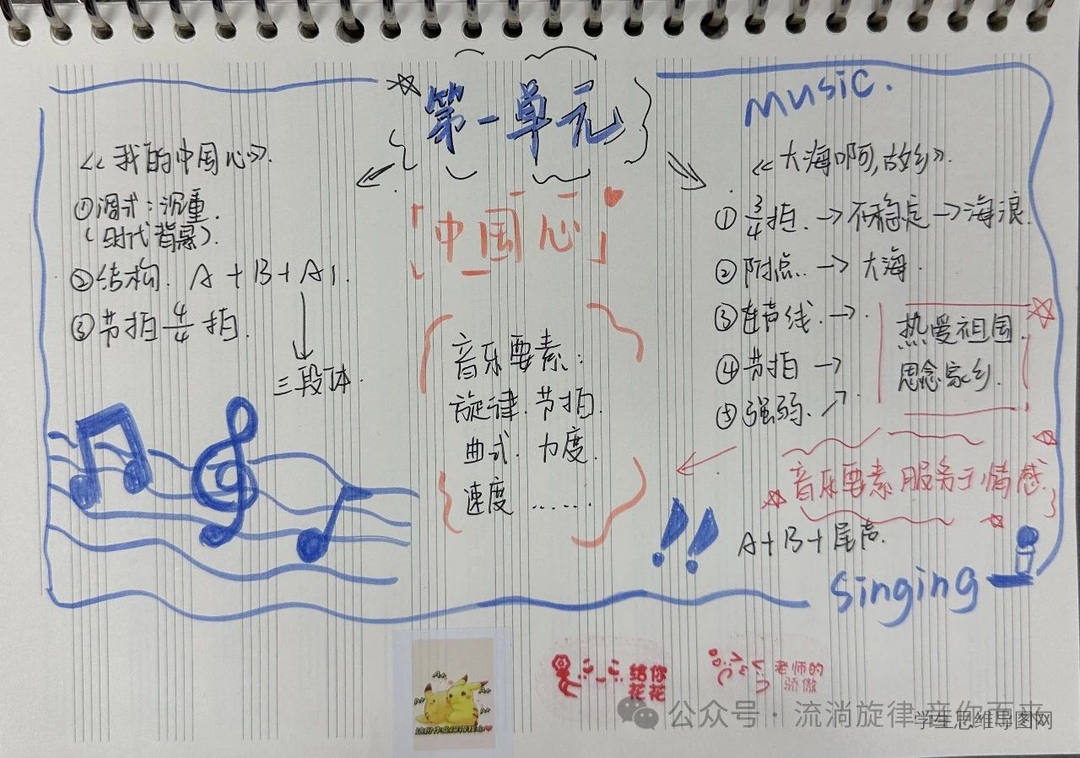 第一单元
「中国心」
《我的中国心》.
①调式:沉重.
(时代背景).
②结构. A+B+A1.
③节拍 4/4 拍.
三段体.
音乐要素:
旋律.节拍.
曲式.力度.
速度......
music.
《大海啊,故乡》.
① 3/4拍.→不稳定→海浪.
②附点.→大海.
③连声线.→
④节拍→
⑤强弱.↗
热爱祖国.
思念家乡.
音乐要素服务于情感.
!!
A+B+尾声.
singing
给你
花花
老师的
骄傲
公众号·流淌旋律 音你而来
学生思维导图网